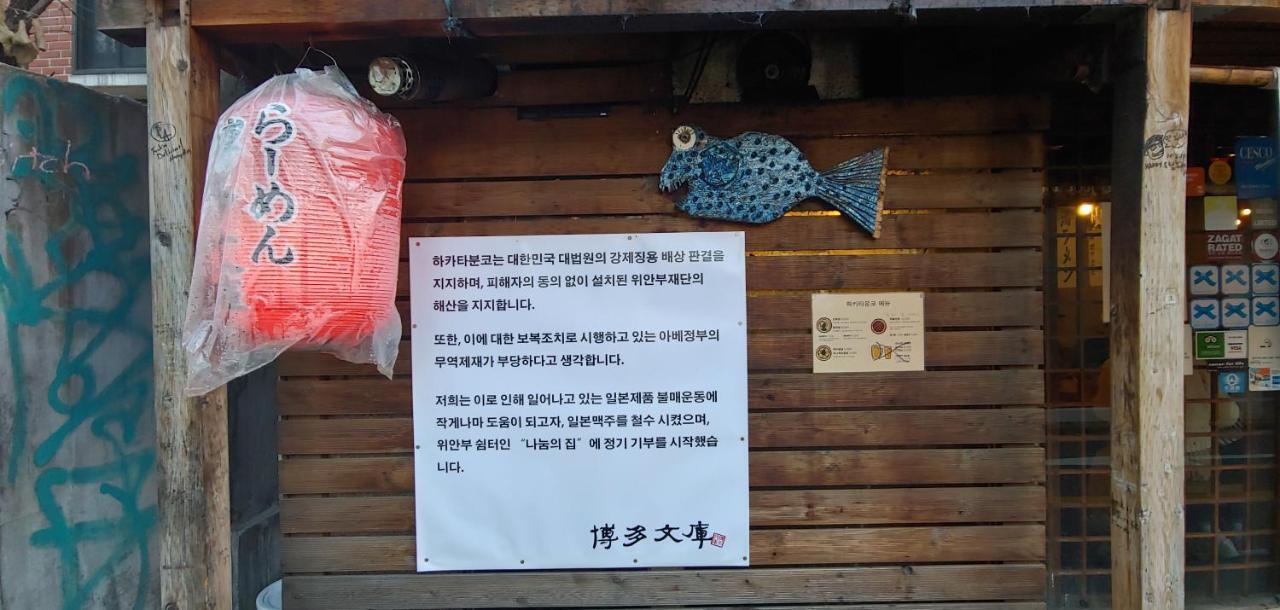 らーめん
하카타분코는 대한민국 대법원의 강제징용 배상 판결을
지지하며, 피해자의 동의 없이 설치된 위안부재단의
해산을 지지합니다.
또한, 이에 대한 보복조치로 시행하고 있는 아베정부의
무역제재가 부당하다고 생각합니다.
저희는 이로 인해 일어나고 있는 일본제품 불매운동에
작게나마 도움이 되고자, 일본맥주를 철수 시켰으며,
위안부 쉼터인 “나눔의 집”에 정기 기부를 시작했습
니다.
博多文庫
하카타분코 메뉴
CESCO
ZAGAT
RATED
VISA